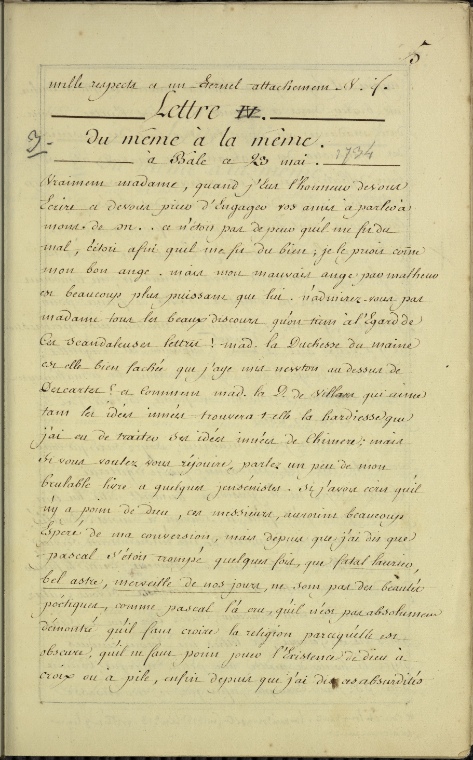 5
mille respects et un Eternel attachement. V. f.
Lettre IV.
3
du même à la même.
à Bâle ce 23 mai. 1734
Vraiment madame, quand j'Eus l'honneur de vous
Ecrire et de vous prier d'Engager vos amis à parler à
monsr. de m.. ce n'étoit pas de peur qu'il me fit du
mal, c'étoit afin qu'il me fit du bien; je le priois come
mon bon ange. mais mon mauvais ange par malheur
est beaucoup plus puissant que lui. n'admirez-vous pas
madame tous les beaux discours qu'on tient à l'Egard de
Ces Scandaleuses lettres? mad. la Duchesse du maine
est elle bien fachée que j'aye mis newton au dessus de
Descartes? et Comment mad. la D. de Villars qui aime
tant les idées innées trouvera t elle la hardiesse que
j'ai eu de traiter ses idées innées de Chimere; mais
Si vous voulez vous réjouir, parlez un peu de mon
brulable livre a quelques jansenistes. Si j'avois ecris qu'il
n'y a point de dieu, ces messieurs, auroient beaucoup
Espéré de ma conversion, mais depuis que j'ai dis que
pascal S'étoit trompé quelques fois, que fatal laurier,
bel astre, merveille de nos jours, ne sont pas des beautés
poétiques, comme pascal l'a cru, qu'il n'est pas absolument
démontré qu'il faut croire la religion parcequ'elle est
obscure, qu'il ne faut point jouer l'Existence de dieu à
croix ou à pile, enfin depuis que j'ai dis ces absurdités